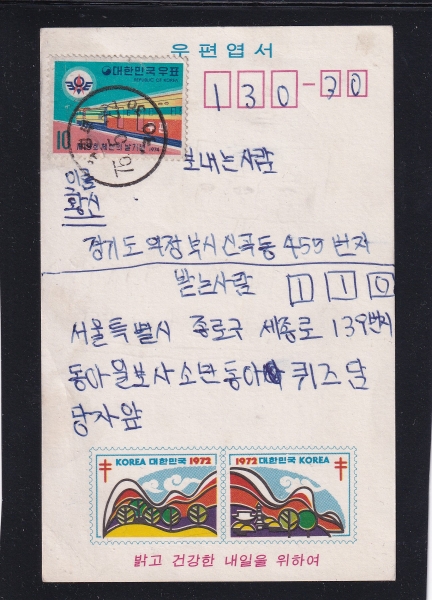 우편엽서
대한민국우표
REPUBLIC OF KOREA
10
130-70
보내는사람
이름
황신
경기도 의정부시 신곡동 455번지
받는사람
110
서울특별시 종로구 세종로 139번지
동아일보사 소년동아 퀴즈 담
당자앞
KOREA 대한민국 1972
1972 대한민국 KOREA
밝고 건강한 내일을 위하여